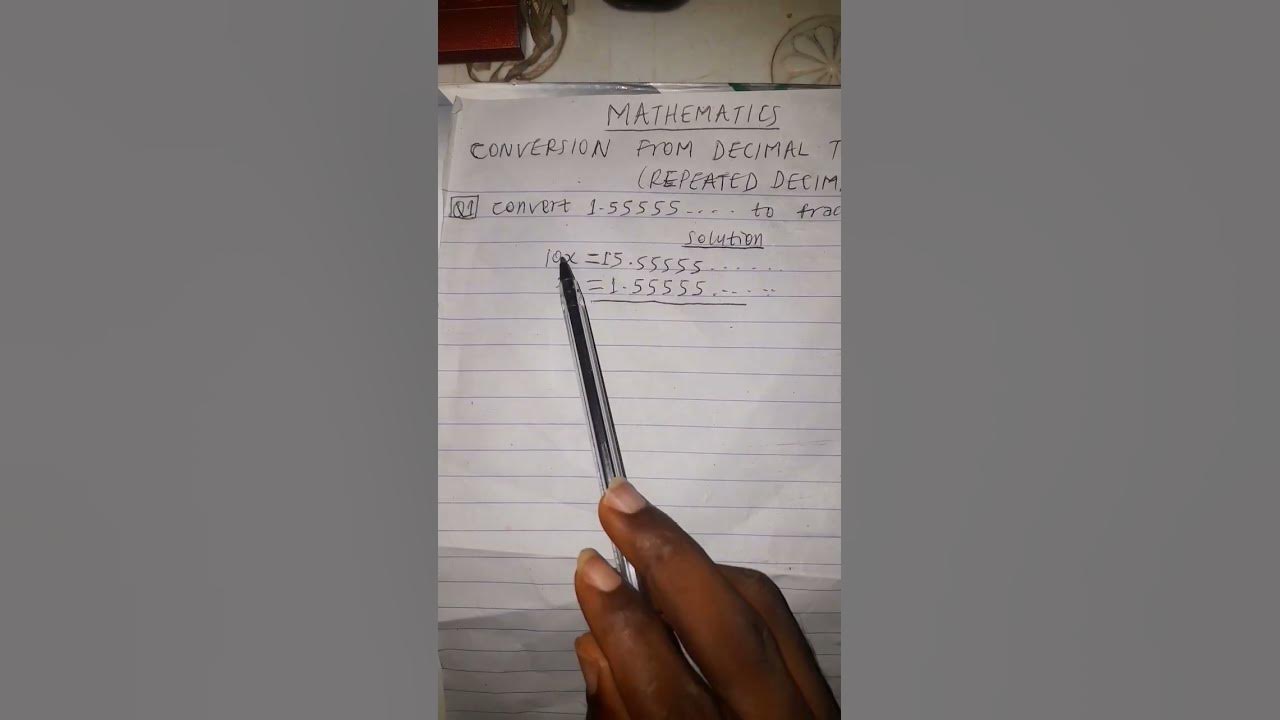 MATHEMATICS
CONVERSION FROM DECIMAL T
(REPEATED DECIM
Q1 Convert 1.55555.... to frac
Solution
10x = 15.55555......
= 1.55555......